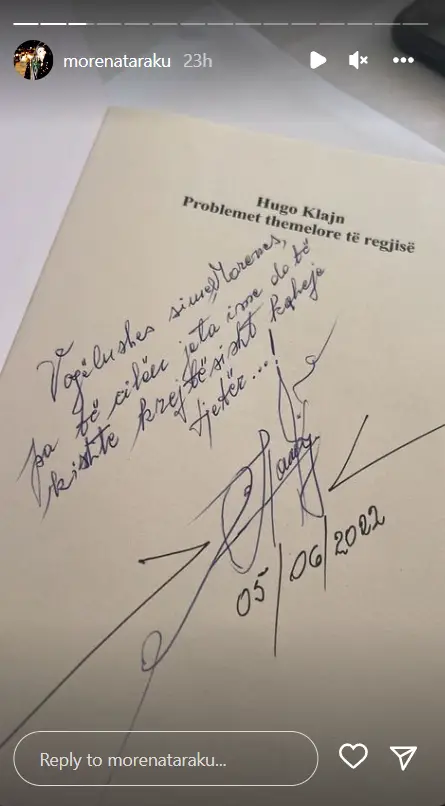 morenataraku 23h
Hugo Klajn
Problemet themelore të regjisë
Vogëlushes sime Morenes,
pa të cilën jeta ime do të
kishte krejtësisht kahje
tjetër...!
05/06/2022
Reply to morenataraku...